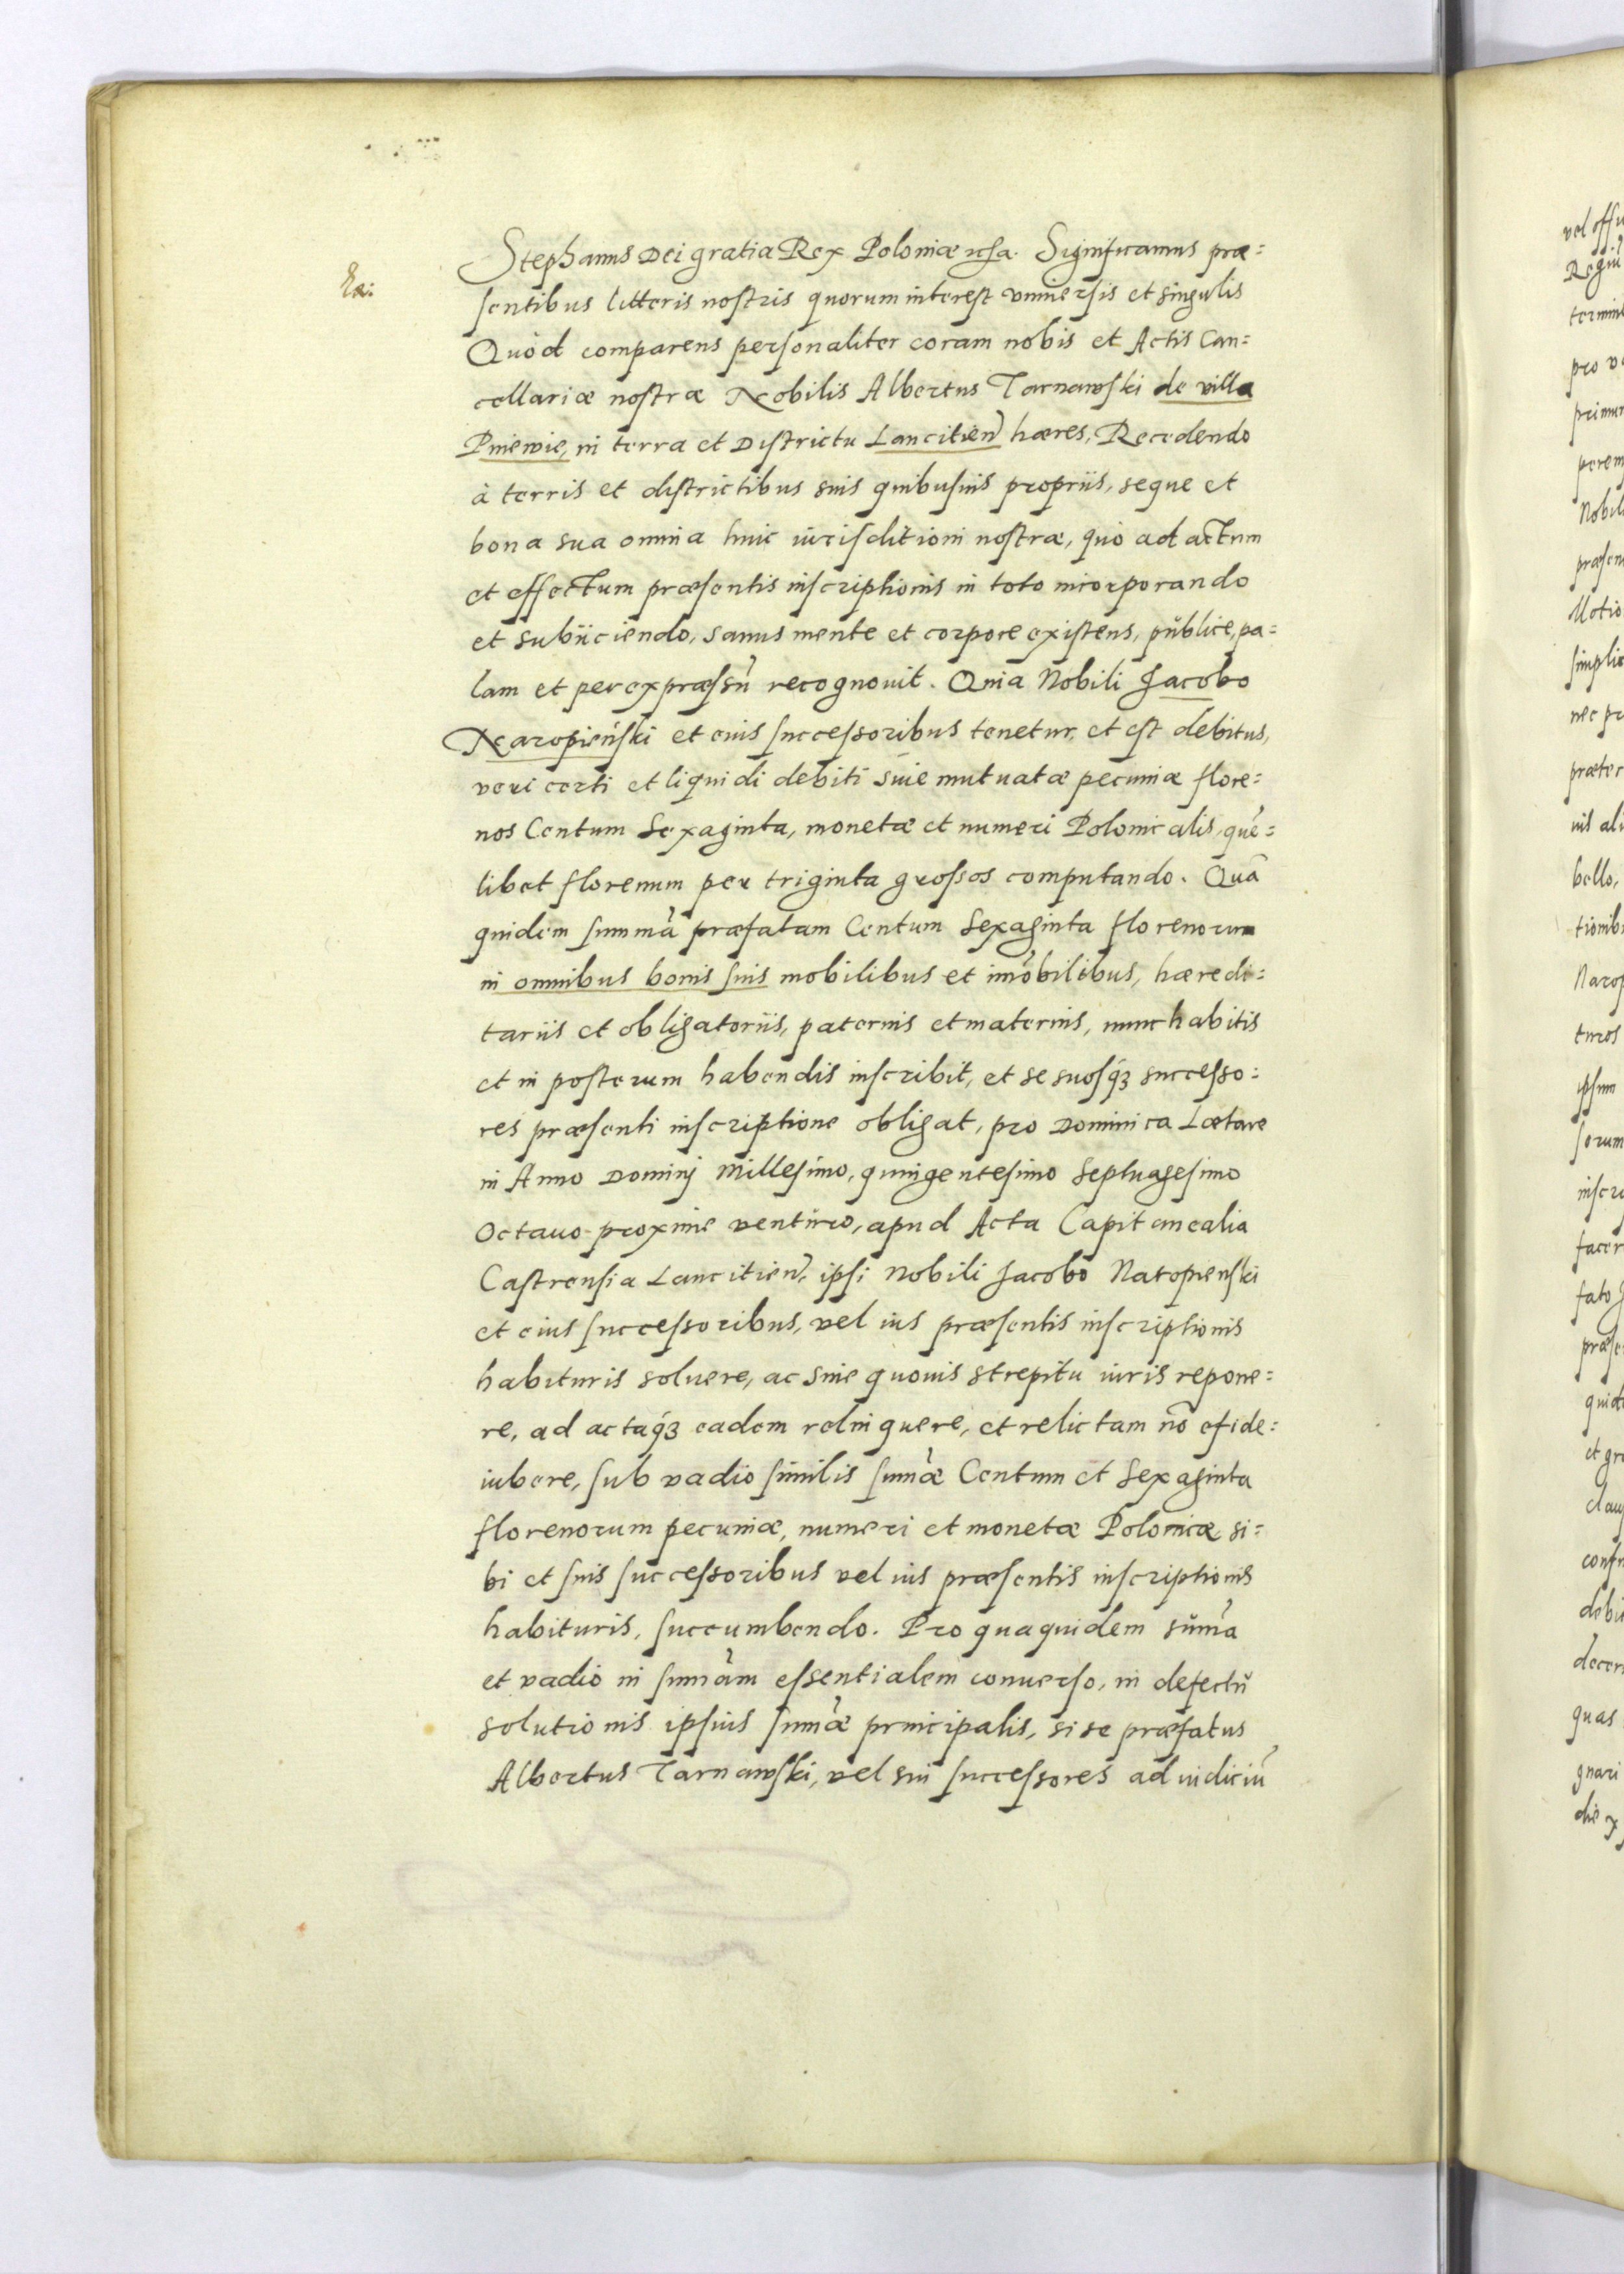 Ex:
Stephanus Dei gratia Rex Poloniæ etc̃a. Significamus præ=
sentibus litteris nostris quorum interest vniuersis et singulis
Quòd comparens personaliter coram nobis et Actis Can=
cellariæ nostræ Nobilis Albertus Tarnawski de villa
Pniewie, in terra et Districtu Lancitien̄ hæres, Recedendo
à terris et districtibus suis quibusuis propriis, seque et
bona sua omnia huic iurisditioni nostræ, quò ad actum
et effectum præsentis inscriptionis in toto incorporando
et subiiciendo, sanus mente et corpore existens, publice, pa=
lam et per expræssū recognouit. Quia Nobili Jacobo
Naropieński et eius successoribus tenetur, et est debitus,
veri certi et liquidi debiti siue mutuatæ pecuniæ flore=
nos Centum Sexaginta, monetæ et numeri Polonicalis, quē=
libet florenum per triginta grossos computando. Quā
quidem summā præfatam Centum Sexaginta florenorum
in omnibus bonis suis mobilibus et im̄obilibus, hæredi=
tariis et obligatoriis, paternis et maternis, nunc habitis
et in posterum habendis inscribit, et se suosq́ꝫ successo=
res præsenti inscriptione obligat, pro Dominica Lætare
in Anno Dominj Millesimo, quingentesimo Septuagesimo
Octauo proxime venturo, apud Acta Capitanealia
Castrensia Lancitien̄, ipsi Nobili Jacobo Naropienski
et eius successoribus, vel ius præsentis inscriptionis
habituris soluere, ac sine quouis strepitu iuris repone=
re, ad actaq́ꝫ eadem relinquere, et relictam nō efide=
iubere, sub vadio similis sum̄æ Centum et Sexaginta
florenorum pecuniæ, numeri et monetæ Polonicæ, si=
bi et suis successoribus vel ius præsentis inscriptionis
habituris, succumbendo. Pro quaquidem sum̄a
et vadio in sum̄am essentialem conuerso, in defectū
solutionis ipsius sum̄æ principalis, si se præfatus
Albertus Tarnawski, vel sui successores ad iudiciū